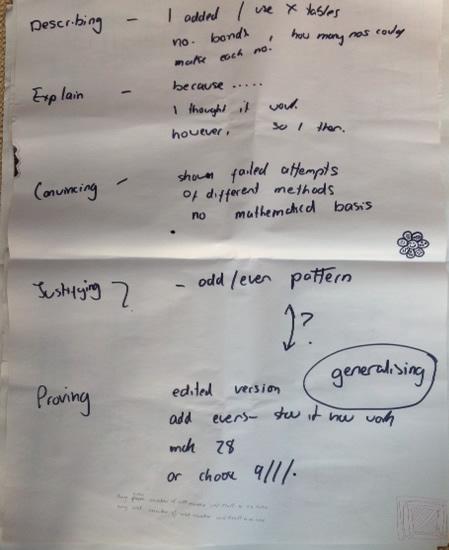 Describing – I added / use x tables
no. bonds, how many nos could
make each no.
Explain – because .....
I thought it
however, so I then.
Convincing – shown failed attempts
of different methods
no mathematical basis
Justifying ? – odd/even pattern
?
generalising
Proving edited version
add evens – it
28
or choose